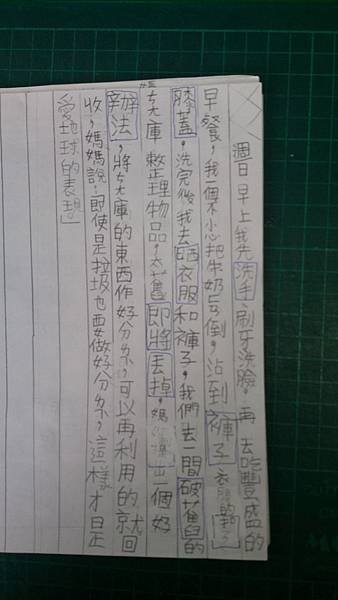 週日早上我先洗手刷牙洗臉,再去吃豐盛的
早餐,我一個不小心把牛奶倒,沾到褲子衣服的
膝蓋,洗完後我去晒衣服和褲子,我們去一間破舊的
ㄘㄤ庫整理物品,太舊即將丟掉,媽出一個好
辦法,將ㄘㄤ庫的東西作好分,可以再利用的就回
收,媽媽說:即使是垃圾也要做好分,這樣才是
愛地球的表現。」